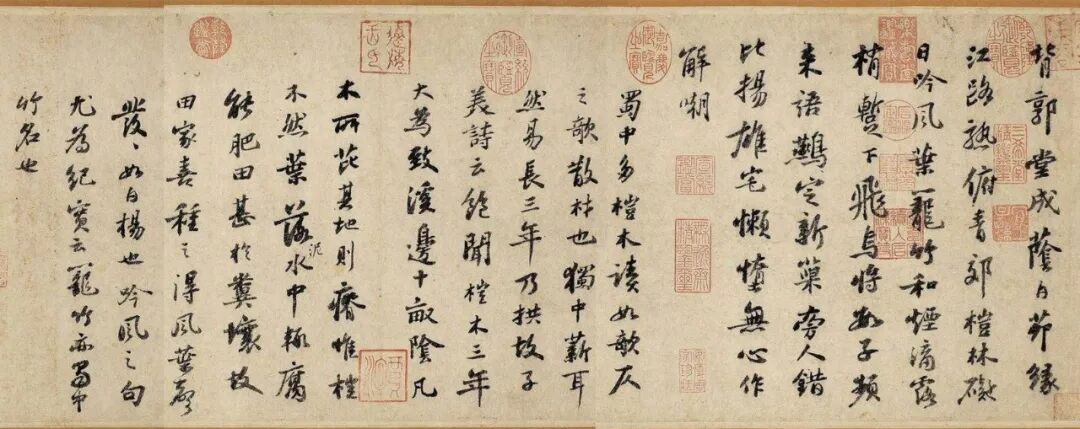 背郭堂成蔭白茆緣
江路熟俯青郊榿林礙
日吟風葉籠竹和煙滴露
梢暫下飛烏將數子頻
來語鷰定新巢旁人錯
比揚雄宅懶惰無心作
解嘲
蜀中多榿木讀如欹仄
之欹散材也獨中薪耳
然易長三年乃拱故子
美詩云飽聞榿木三年
大為致溪邊十畝陰凡
木所芘其地則瘠惟榿
不然葉落泥水中輒腐
能肥田甚於糞壤故
田家喜種之得風葉聲
發發如白楊也吟風之句
尤為紀實云籠竹亦蜀中
竹名也